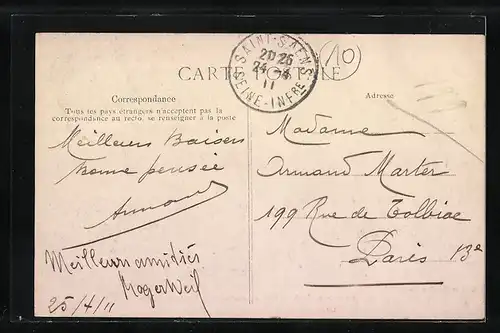 SAINT-SAENS
20 25
24 -4
11
SEINE-INFRE
10
CARTE POSTALE
Correspondance
Tous les pays étrangers n'acceptent pas la
correspondance au recto, se renseigner à la poste
Adresse
Meilleurs Baisers
Bonne pensée
Armand
Meilleures amitiés
Roger Weil
25/4/11
Madame
Armand Marter
199 Rue de Tolbiac
Paris 13e